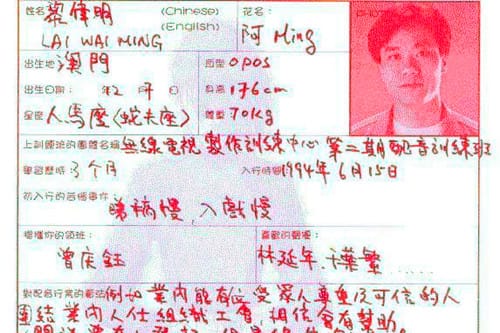 姓名 黎偉明 (Chinese) 花名:
LAI WAI MING (English) 阿 Ming
出生地 澳門 血型 O POS
出生日期: 年2月 日 身高 176cm
星座 人馬座(蛇夫座) 體重 70kg
上訓練班的團體名稱 無線電視製作訓練中心第二期配音訓練班
畢習歷時 3个月 入行時間 1994年6月15日
初入行的苦惱事件:
睇稿慢,入戲慢
提攜你的領班: 喜歡的聲優:
曾庆鈺 林延年、千葉繁.....
對配音行業的 例如業內能有位受眾人尊重及可信的人
團結業內人仕組織工會,相信會有幫助